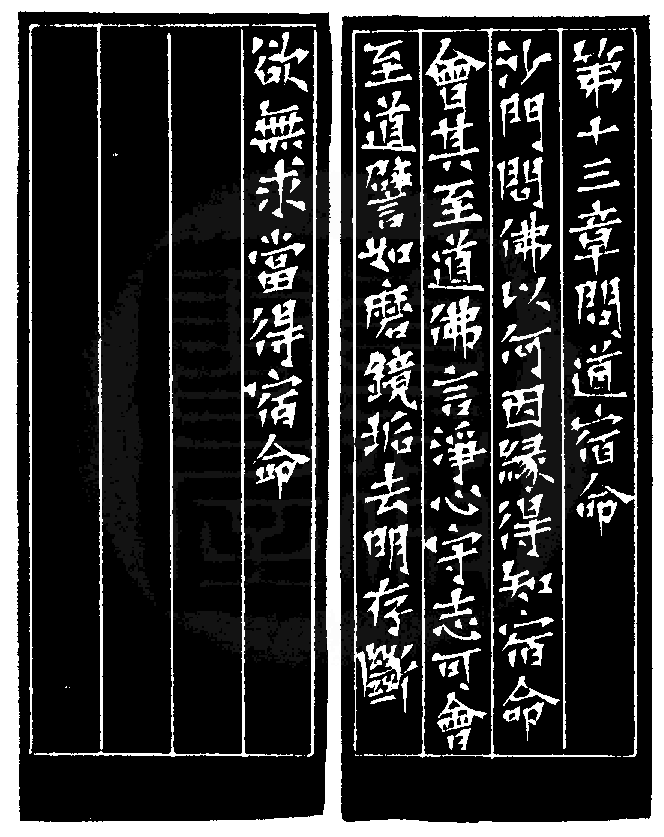 第十三章問道宿命
沙門問佛以何因緣得知宿命
會其至道佛言淨心守志可會
至道譬如磨鏡垢去明存斷
欲無求當得宿命